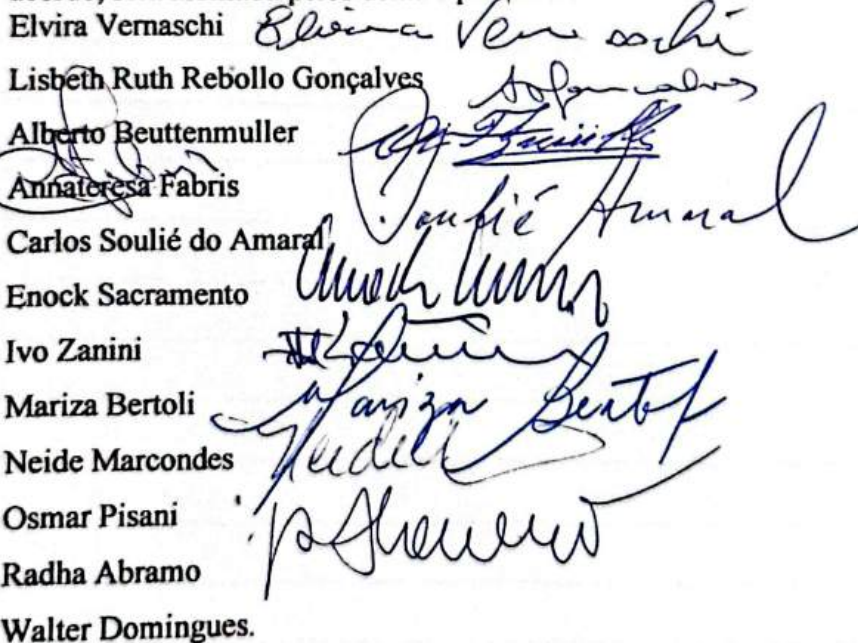 Elvira Vernaschi Elvira Vernaschi
Lisbeth Ruth Rebollo Gonçalves
Alberto Beuttenmuller
Annateresa Fabris
Carlos Soulié do Amaral Soulié Amaral
Enock Sacramento
Ivo Zanini
Mariza Bertoli Mariza Bertoli
Neide Marcondes Neide
Osmar Pisani
Radha Abramo
Walter Domingues.